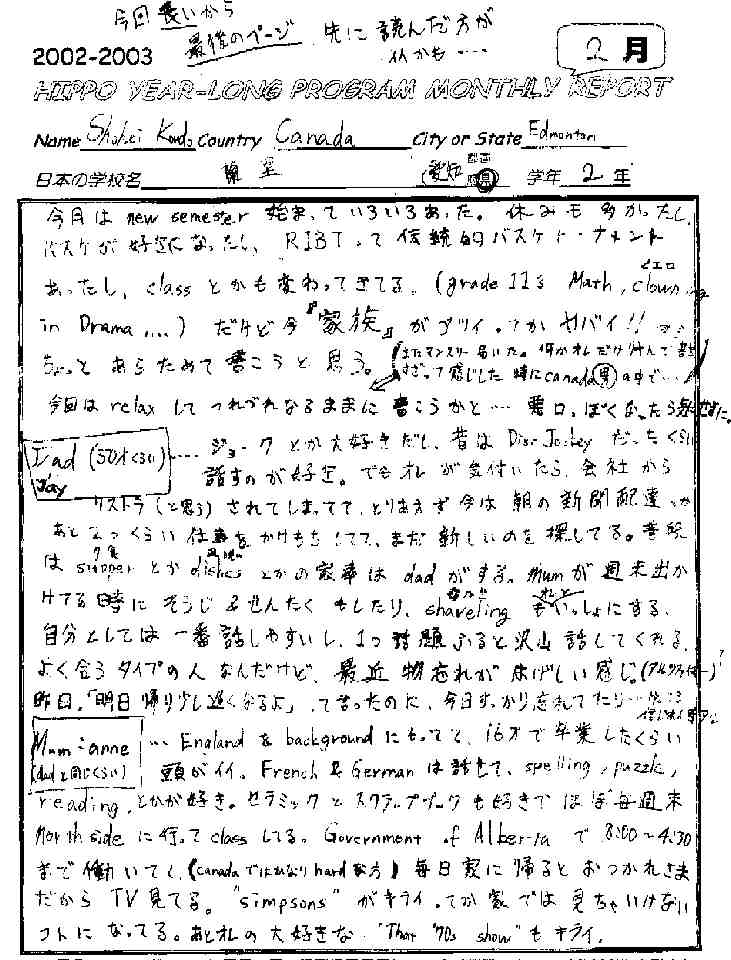 今回 長いから
最後のページ 先に 読んだ方が
いいかも ....
2002-2003
2月
HIPPO YEAR-LONG PROGRAM MONTHLY REPORT
Name Shohei Kondo Country Canada City or State Edmonton
日本の学校名 (愛知 県) 学年 2 年
今月は new semester 始まっていろいろあった。休みも多かったし、
バスケが好きになったし、RIBTって伝統的バスケトーナメント
あったし、classとかも変わってきてる。(grade 11's Math, clowning
ピエロ
in Drama, ...) だけど今『家族』がアツイ。てかヤバイ!!
ちょっとあらためて書こうと思う。
今回は relax してつれづれなるままに書こうかと… 悪口、ぽくなったら
Dad (50才くらい)
Jay
.... ジョークとか大好きだし、昔は Disc Jockey だったくらい
話すのが好き。でもオレが気付いたら、会社から
リストラ(と思う)されてしまってて、とりあえず今は朝の新聞配達とか
あと2つくらい仕事をかけもちしてて、まだ新しいのを探してる。普段
は supper とか dishes とかの家事は dad がする。mumが週末出か
夕食
けてる時にそうじ&せんたくもしたり、shoveling もいっしょにする。
自分としては一番話しやすいし、1つ話題ふると沢山話してくれる、
よく合うタイプの人なんだけど、最近物忘れがはげしい感じ。(アルツハイマー)?
昨日、「明日帰り少し遅くなるよ」、って言ったのに、今日すっかり忘れてたり…
Mum: anne
(dadと同じくらい)
... Englandをbackgroundにもってて、16才で卒業したくらい
頭がイイ。French & German は話せて、spelling, puzzle,
reading, とかが好き。セラミックとスクラップブックも好きでほぼ毎週末
North side に行って class してる。Government of Alberta で 8:00~4:30
まで働いてて、(canadaではかなり hard な方) 毎日家に帰るとおつかれさま
だから TV 見てる。"simpsons" がキライ。てか家では見ちゃいけない
コトになってる。あとオレの大好きな "That '70s show" もキライ。